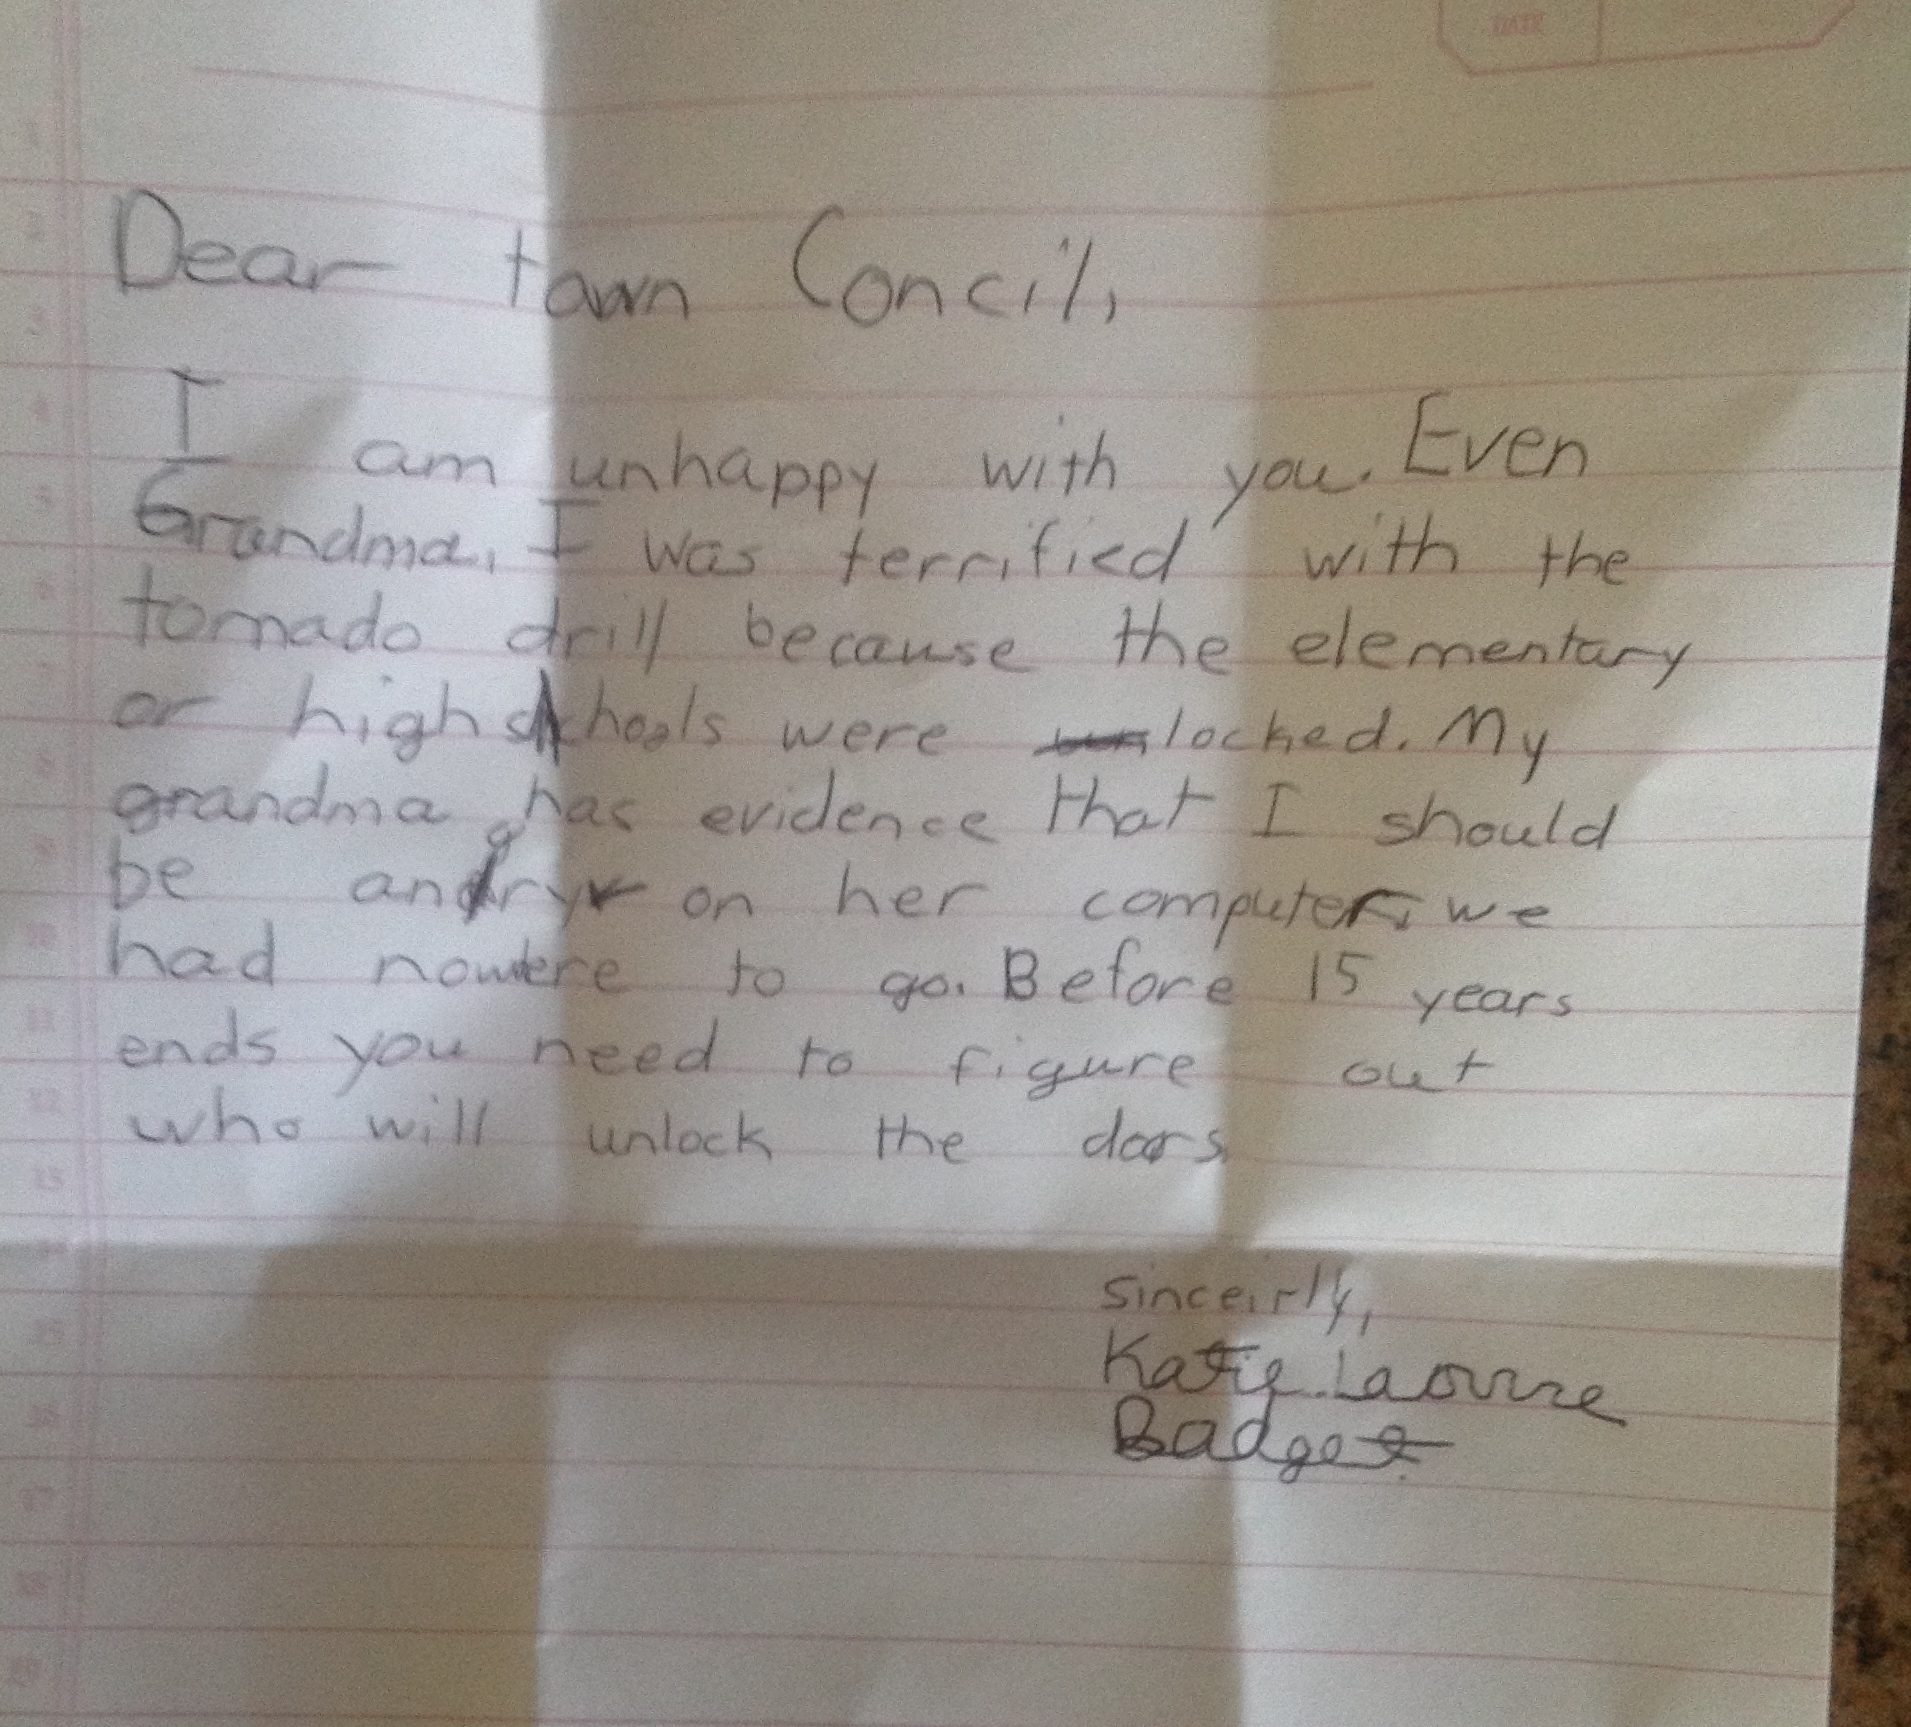 DATE
Dear town Concil,
I am unhappy with you. Even
Grandma. I was terrified with the
tornado drill because the elementary
or high schools were locked. My
grandma has evidence that I should
be angry on her computer. we
had nowere to go. Before 15 years
ends you need to figure out
who will unlock the doors
sinceirly,
Katie
Badget